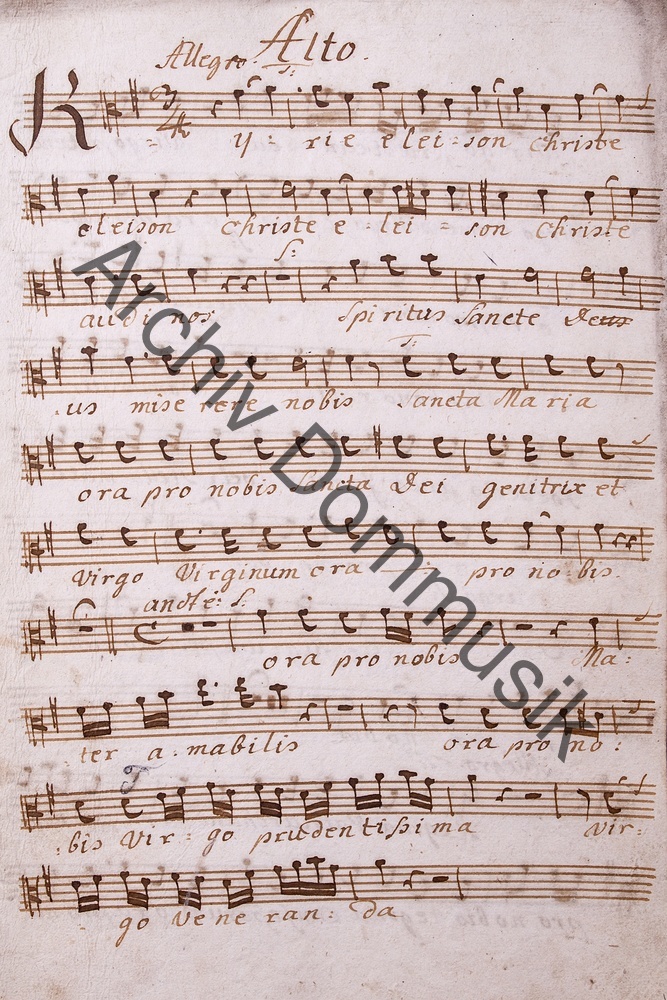 Allegro. Alto.
S:
Ky - rie elei - son Christe
eleison Christe e - lei - son Christe
S:
audi nos Spiritus Sancte Deus
T:
us mise rere nobis Sancta Maria
ora pro nobis Sancta Dei genitrix et
Virgo Virginum ora pro no bis.
S:
ora pro nobis Ma:
ter a. mabilis ora pro no:
:bis Vir - go prudentissima vir:
go Ve ne ran: da
Archiv Dommusik